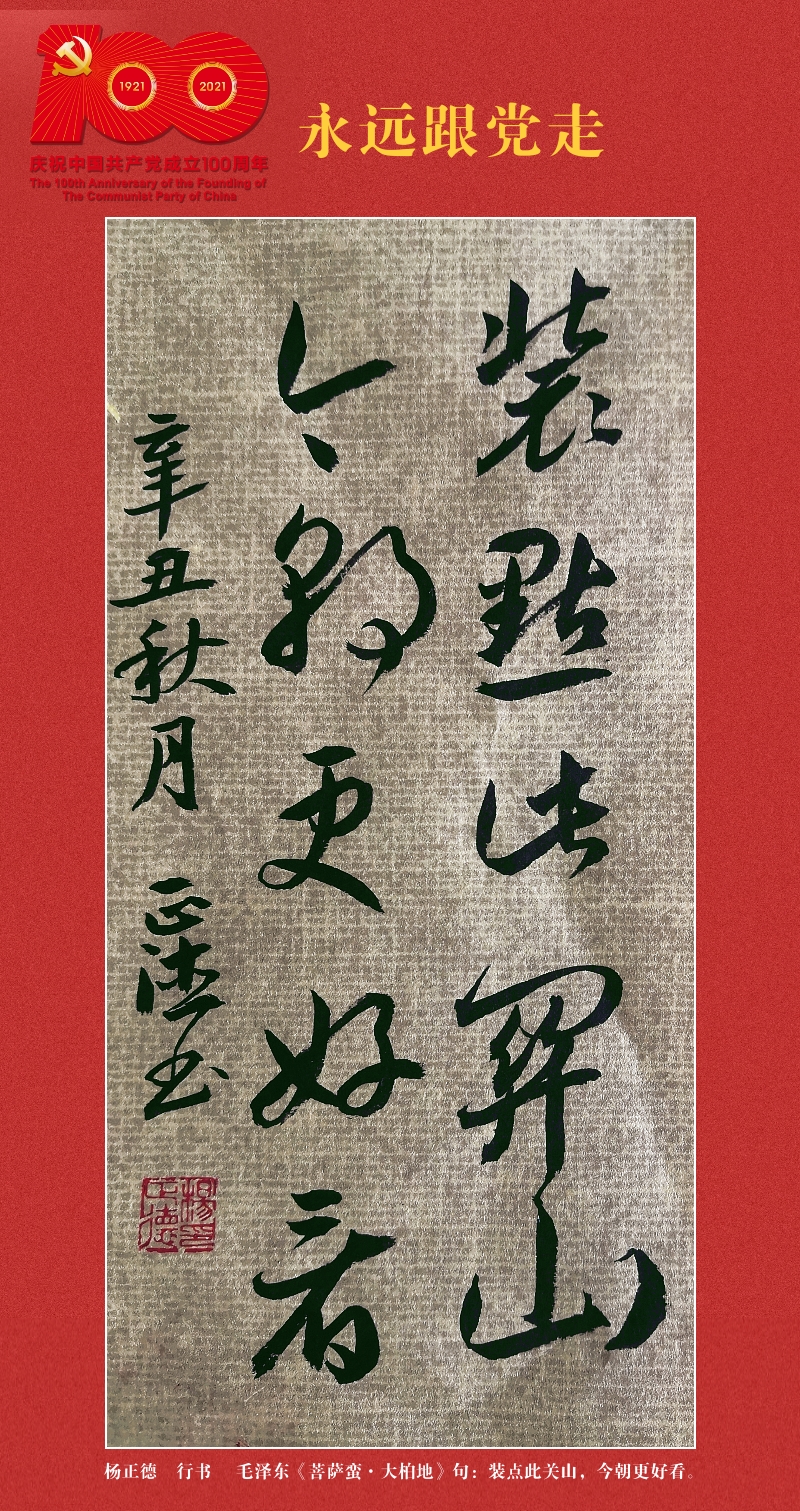 1921 2021
庆祝中国共产党成立100周年
The 100th Anniversary of the Founding of
The Communist Party of China
永远跟党走
裝點此關山
今朝更好看
辛丑秋月 正德书
杨正德 行书 毛泽东《菩萨蛮·大柏地》句：装点此关山，今朝更好看。